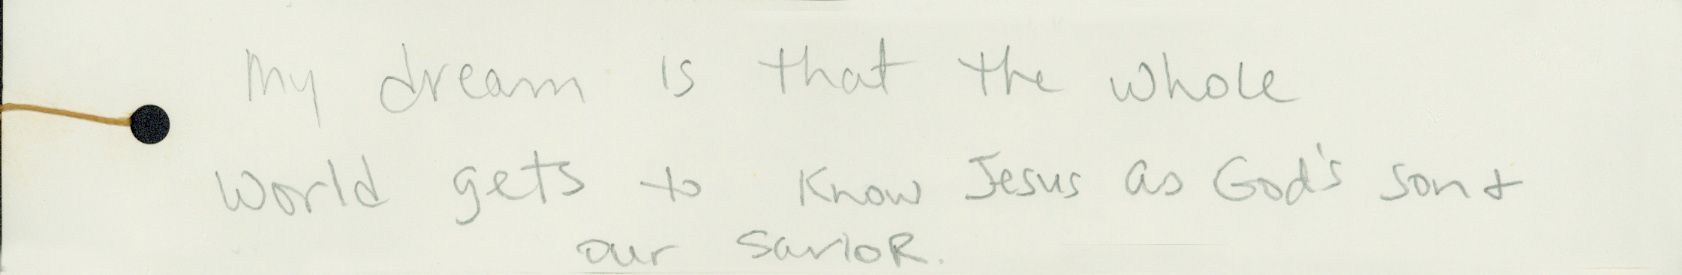 My dream is that the whole
world gets to know Jesus as God's son +
our savioR.